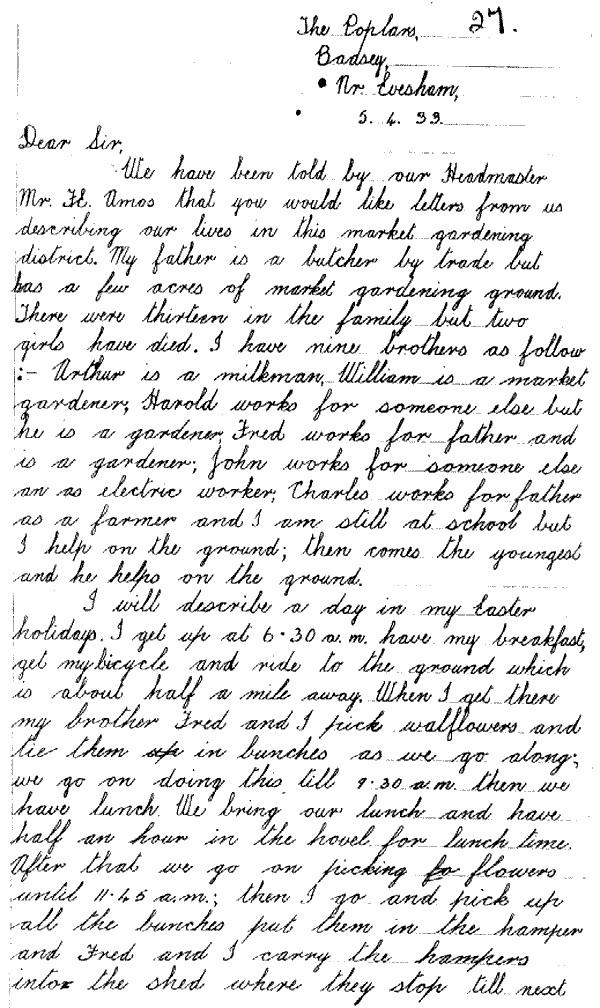 The Poplars, 27.
Badsey,
Nr. Evesham,
5. 4. 33.
Dear Sir,
We have been told by our Headmaster
Mr. F.E. Amos that you would like letters from us
describing our lives in this market gardening
district. My father is a butcher by trade but
has a few acres of market gardening ground.
There were thirteen in the family but two
girls have died. I have nine brothers as follow
:- Arthur is a milkman, William is a market
gardener; Harold works for someone else but
he is a gardener, Fred works for father and
is a gardener; John works for someone else
an as electric worker; Charles works for father
as a farmer and I am still at school but
I help on the ground; then comes the youngest
and he helps on the ground.
I will describe a day in my Easter
holidays. I get up at 6.30 a.m. have my breakfast,
get my bicycle and ride to the ground which
is about half a mile away. When I get there
my brother Fred and I pick wallflowers and
tie them up in bunches as we go along;
we go on doing this till 9.30 a.m. then we
have lunch. We bring our lunch and have
half an hour in the hovel for lunch time.
After that we go on picking fo flowers
until 11.45 a.m.; then I go and pick up
all the bunches put them in the hamper
and Fred and I carry the hampers
into the shed where they stop till next